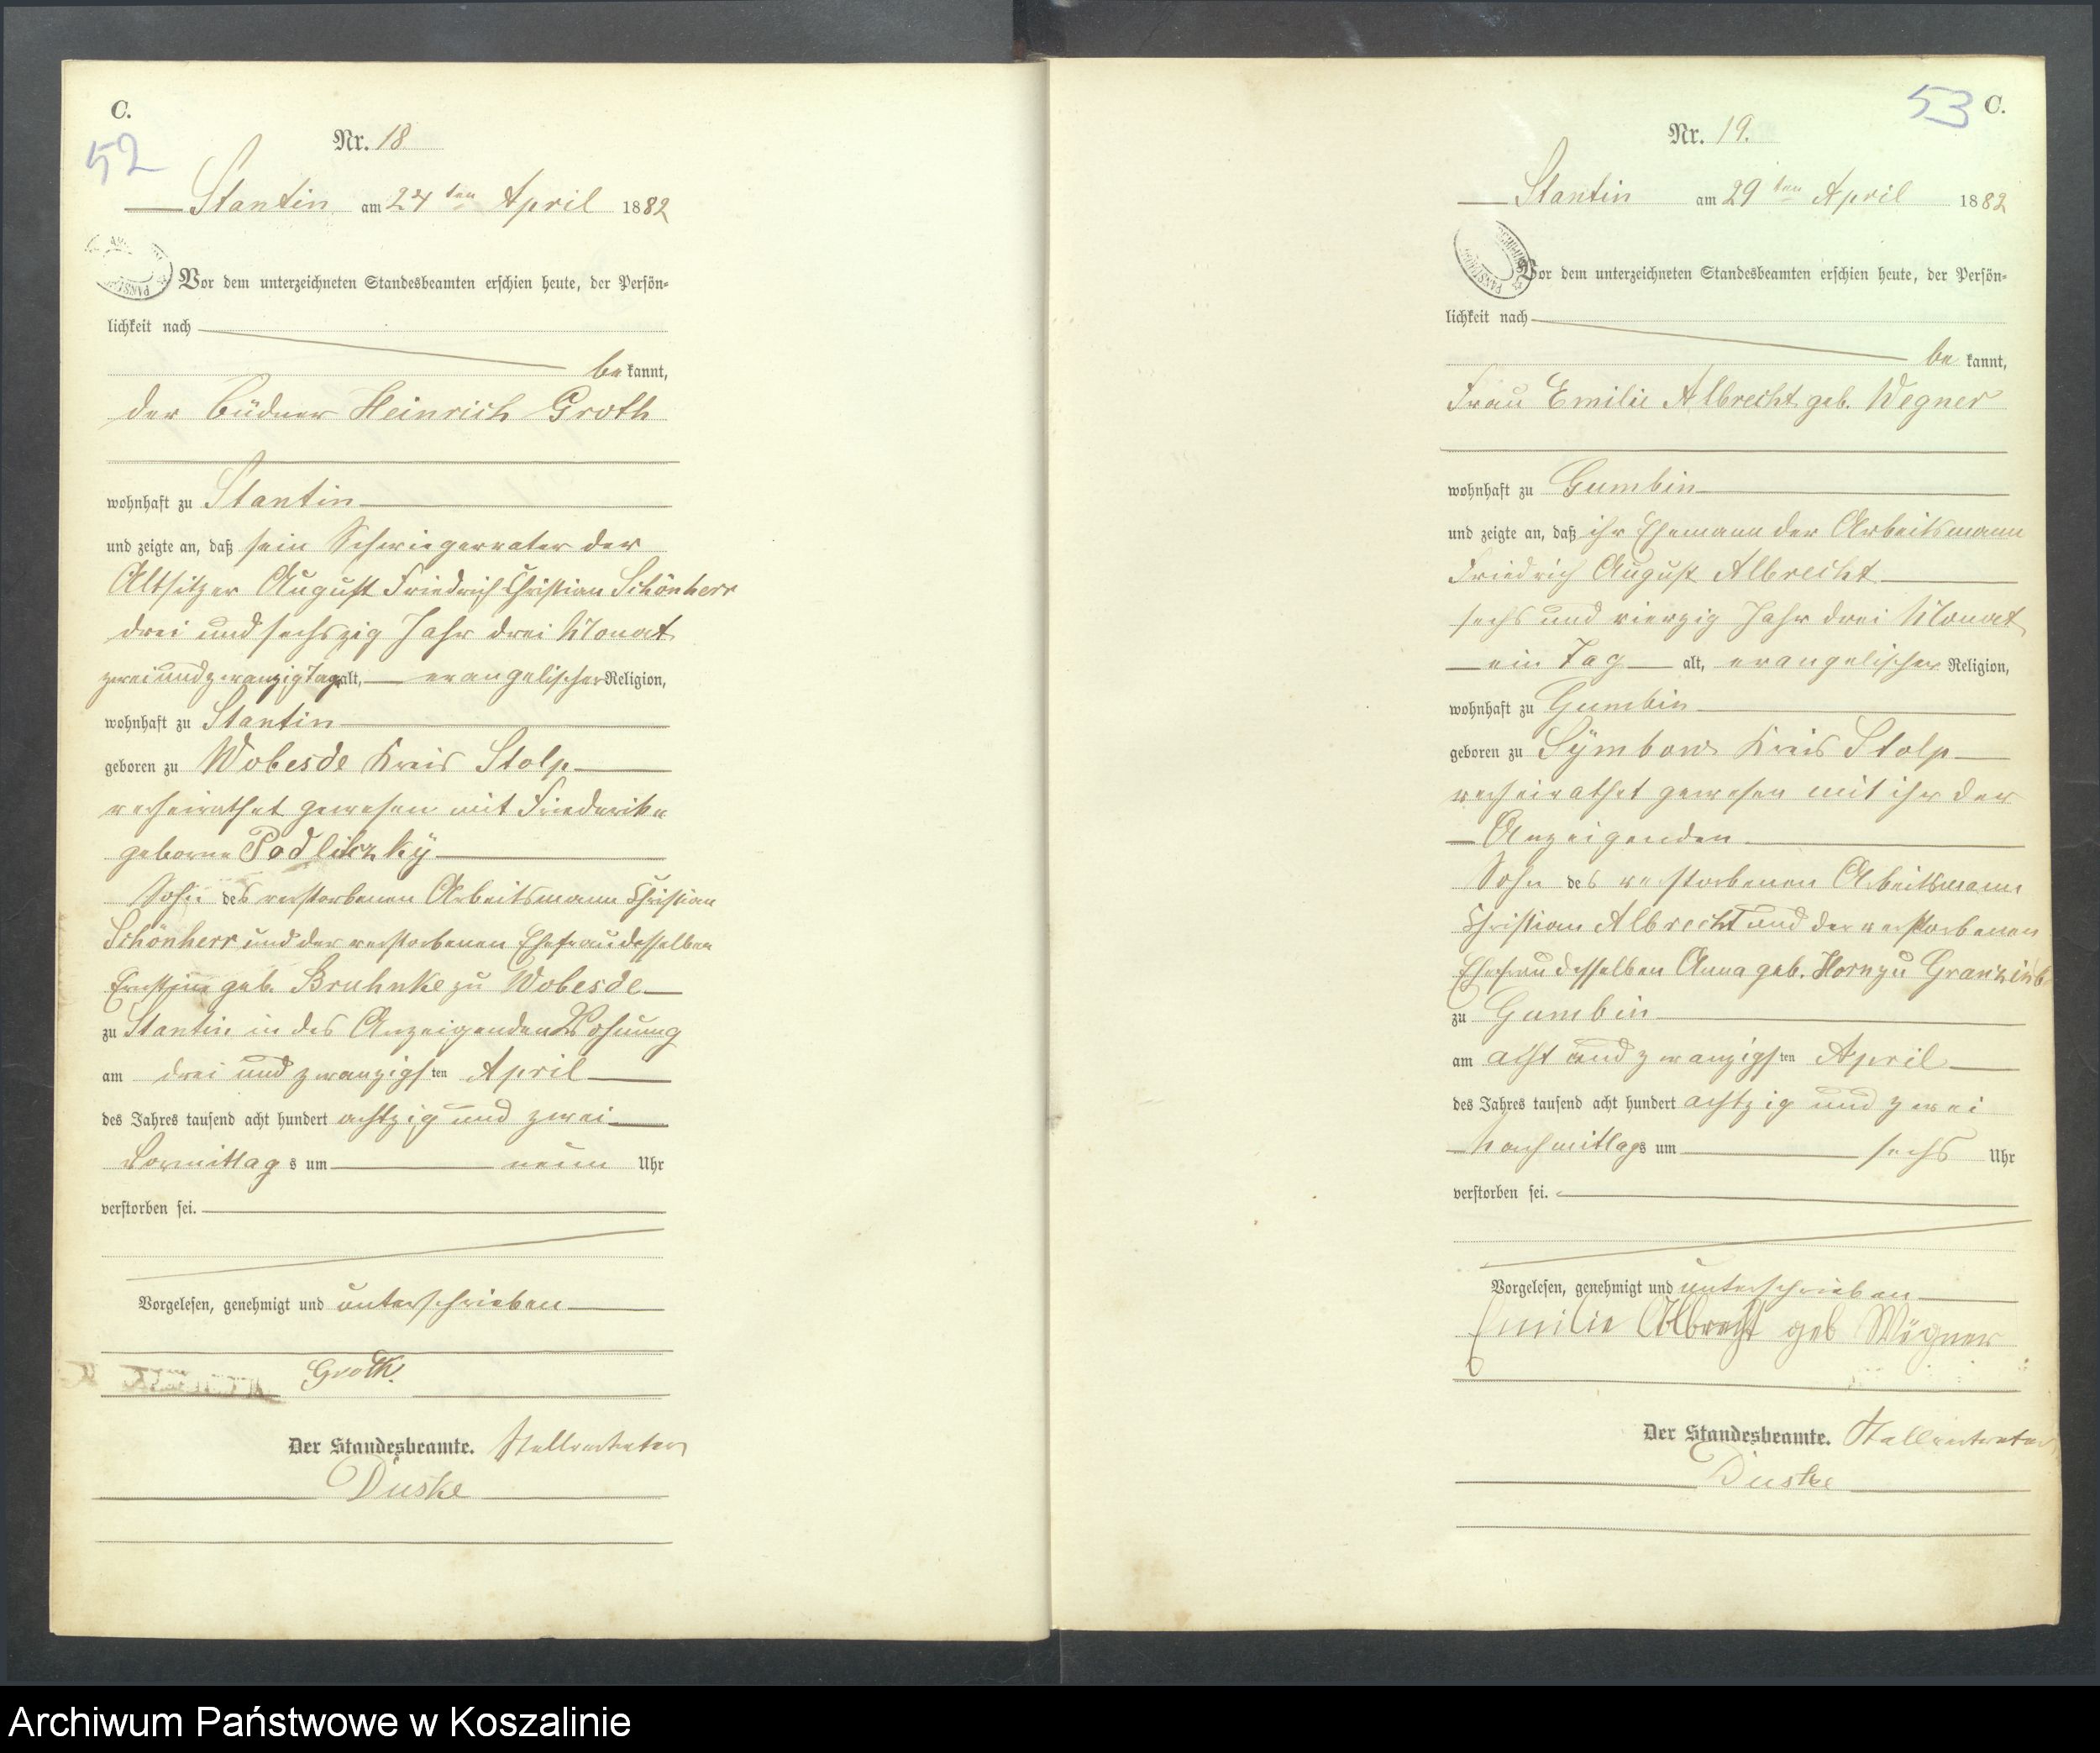 C.
52
Nr. 18
Stantin am 24ten April 1882
Vor dem unterzeichneten Standesbeamten erschien heute, der Persön-
lichkeit nach
be kannt,
der Büdner Heinrich Groth
wohnhaft zu Stantin
und zeigte an, daß sein Schwiegervater der
Altsitzer August Friedrich Christian Schönherr
drei und sechszig Jahr drei Monat
zwei und zwanzig Tage alt, evangelischer Religion,
wohnhaft zu Stantin
geboren zu Wobesde Kreis Stolp
verheirathet gewesen mit Friederike
geborne
Sohn des verstorbenen Arbeitsmann Christian
Schönherr und der verstorbenen Ehefrau desselben
Ernstine geb. Bruhnke zu Wobesde
zu Stantin in des Anzeigenden Wohnung
am drei und zwanzigsten April
des Jahres tausend acht hundert achtzig und zwei
Vormittags um neun Uhr
verstorben sei.
Vorgelesen, genehmigt und unterschrieben
Groth.
Der Standesbeamte. Stellvertreter
Duske
53 C.
Nr. 19.
Stantin am 29ten April 1882
Vor dem unterzeichneten Standesbeamten erschien heute, der Persön-
lichkeit nach
be kannt,
Frau Emilie Albrecht geb. Wegner
wohnhaft zu Gumbin
und zeigte an, daß ihr Ehemann der Arbeitsmann
Friedrich August Albrecht
sechs und vierzig Jahr drei Monat
ein Tag alt, evangelischer Religion,
wohnhaft zu Gumbin
geboren zu Symbow Kreis Stolp
verheirathet gewesen mit ihr der
Anzeigenden
Sohn des verstorbenen Arbeitsmann
Christian Albrecht und der verstorbenen
Ehefrau desselben Anna geb. Horn zu
zu Gumbin
am acht und zwanzigsten April
des Jahres tausend acht hundert achtzig und zwei
Nachmittags um sechs Uhr
verstorben sei.
Vorgelesen, genehmigt und unterschrieben
Emilie Albrecht geb Wegner
Der Standesbeamte. Stellvertreter
Duske
Archiwum Państwowe w Koszalinie